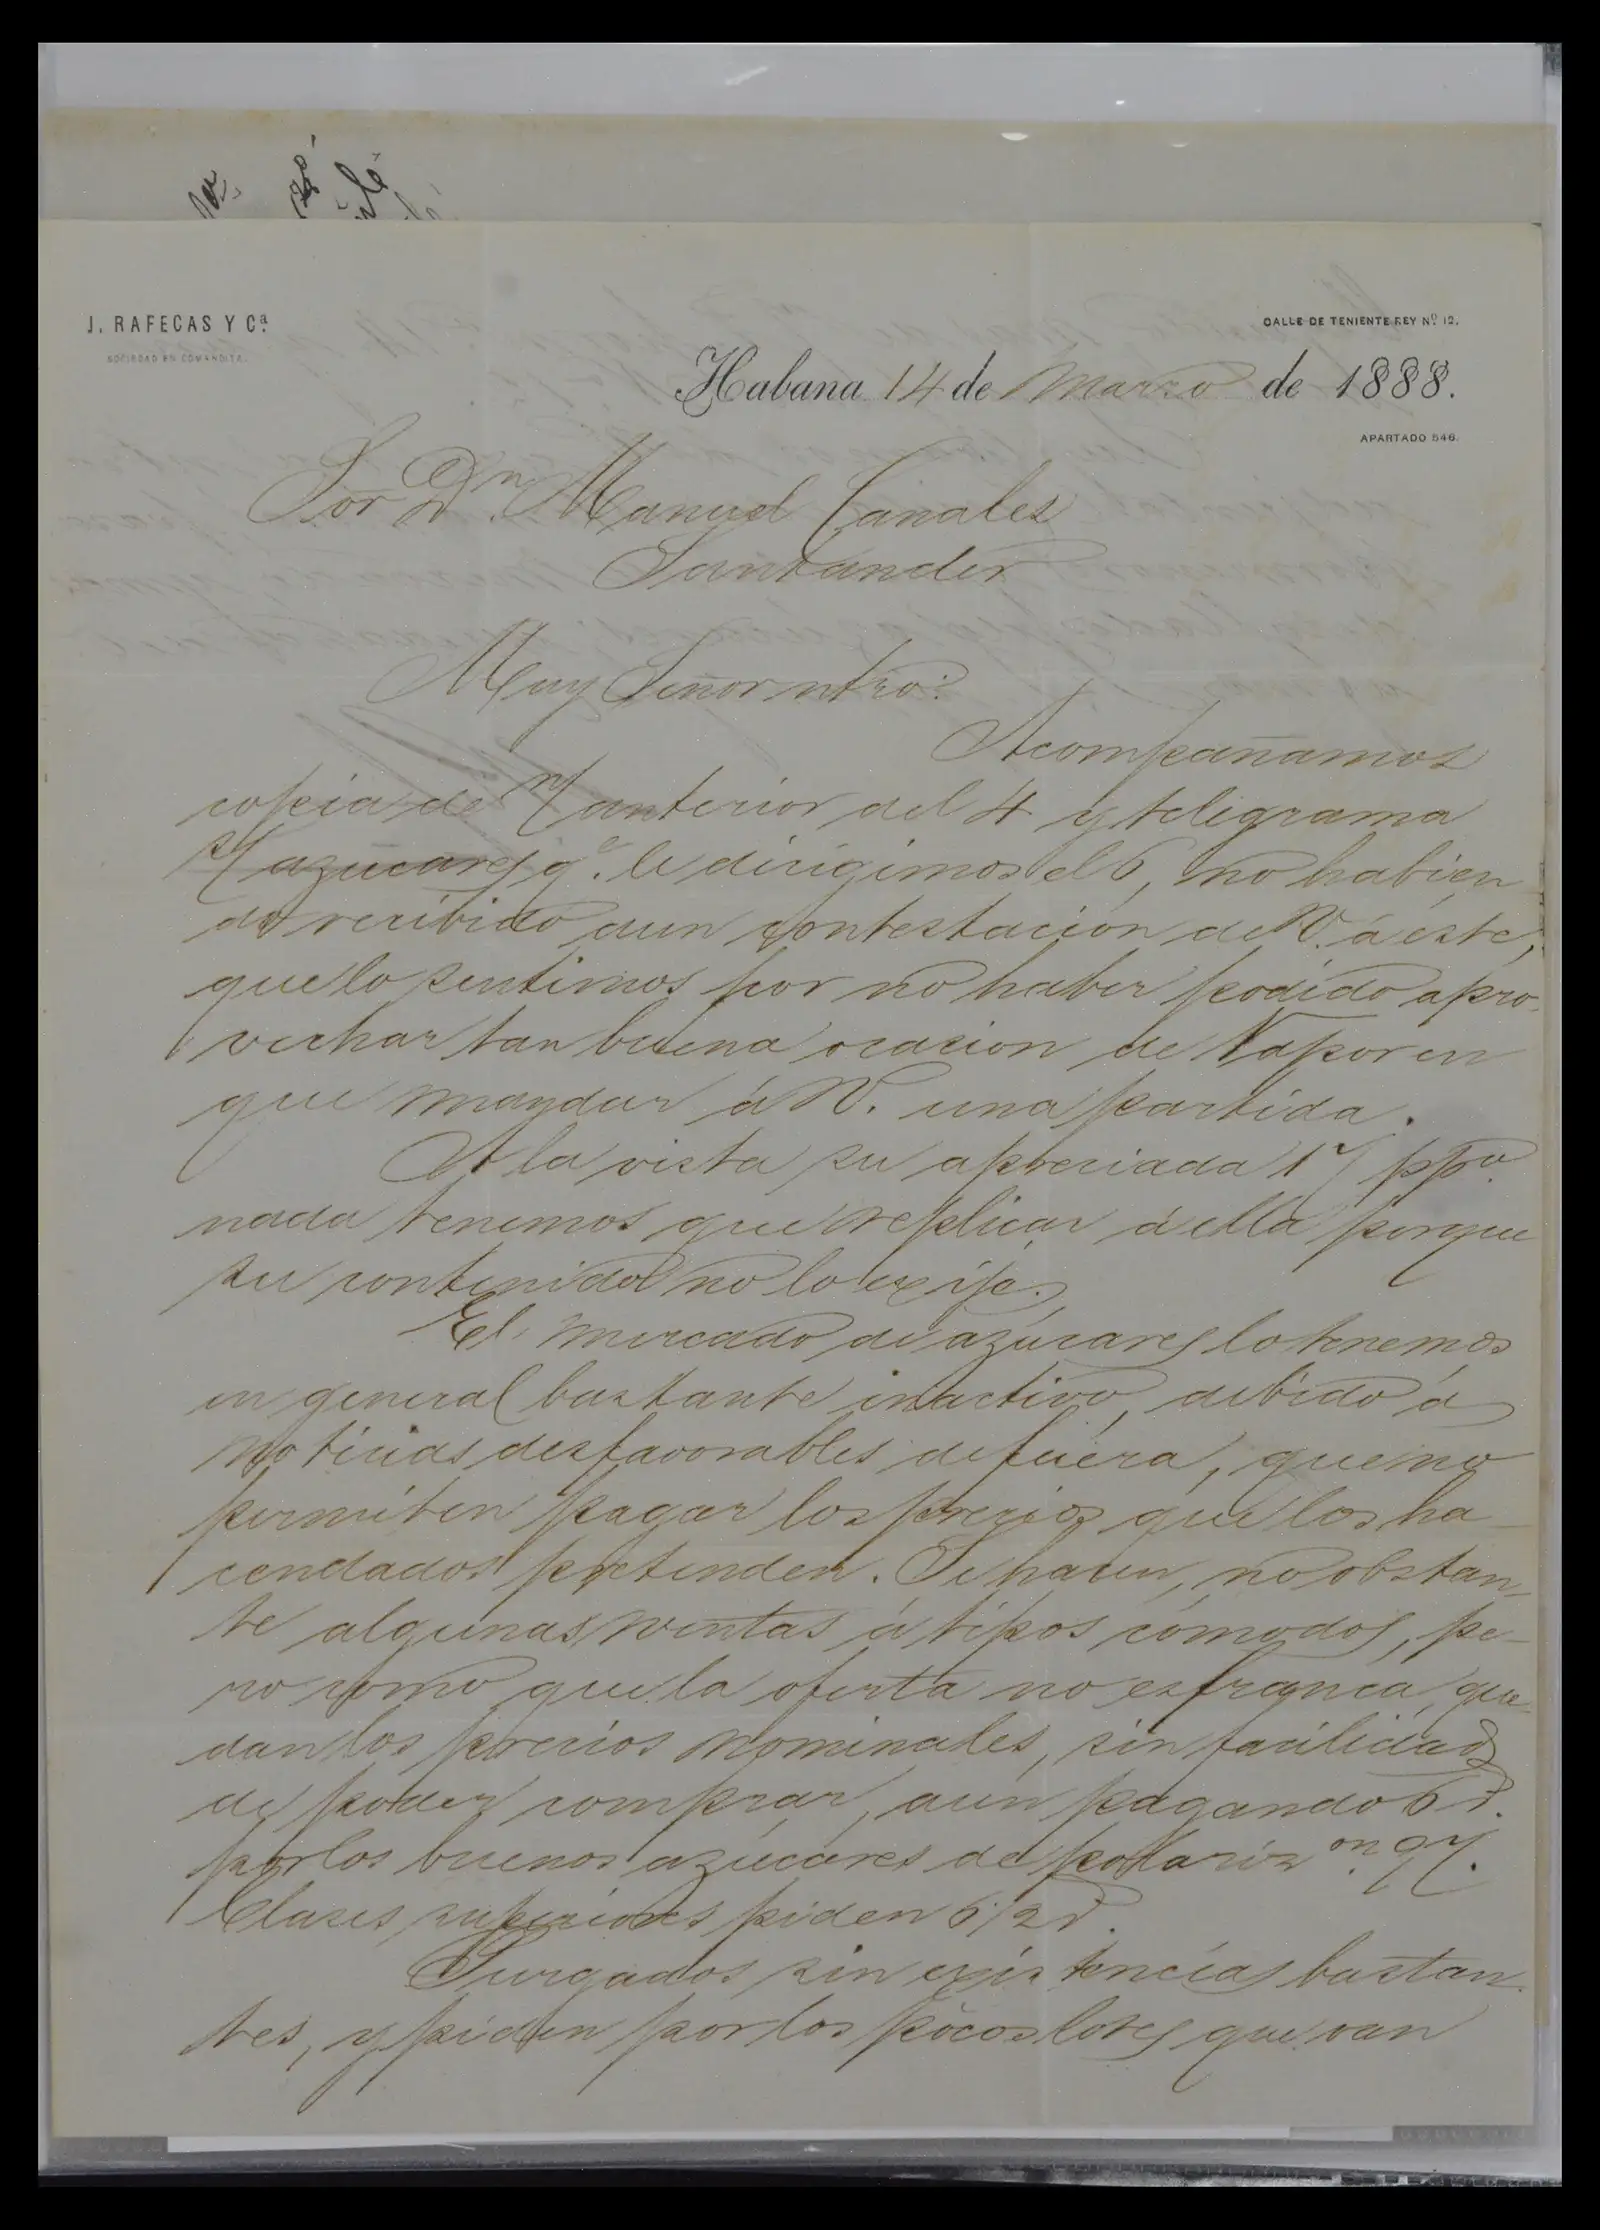 J. RAFECAS Y Cª.
SOCIEDAD EN COMANDITA.
CALLE DE TENIENTE REY Nº 12.
Habana 14 de Marzo de 1888.
APARTADO 546.
Sor Dn. Manuel Canales
Santander
Muy Señor ntro:
Acompañamos
copia de n/ anterior del 4 y teligrama
s/ azucares qe. le dirigimos el 6, no habien
do recibido aun contestación de V. á éste,
que lo sentimos por no haber podido apro
vechar tan buena ocasion de Vapor en
que mandar á V. una partida.
A la vista su apreciada 17 ppdo.
nada tenemos que replicar á ella porque
su contenido no lo exije.
El mercado de azúcares lo tenemos
en general bastante inactivo, debido á
noticias desfavorables de fuera, que no
permiten pagar los precios que los ha-
cendados pretenden. Se hacen, no obstan-
te algunas ventas á tipos cómodos, pe-
ro como que la oferta no es franca, que-
dan los precios nominales, sin facilidad
de poder comprar, aun pagando 6 r.
por los buenos azúcares de polarizon. 97.
Clases superiores piden 6 1/2 r.
Purgados sin existencias bastan-
tes, y piden por los pocos lotes que van